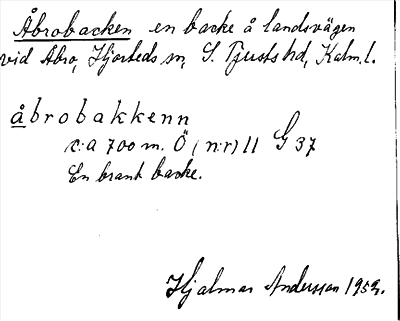 Åbrobacken en backe å landsvägen
vid Åbro, Hjorteds sn, S. Tjusts hd, Kalm. l.
åbrobakkenn
c:a 700 m. Ö (n:r) 11 G 37
En brant backe.
Hjalmar Andersson 1953.